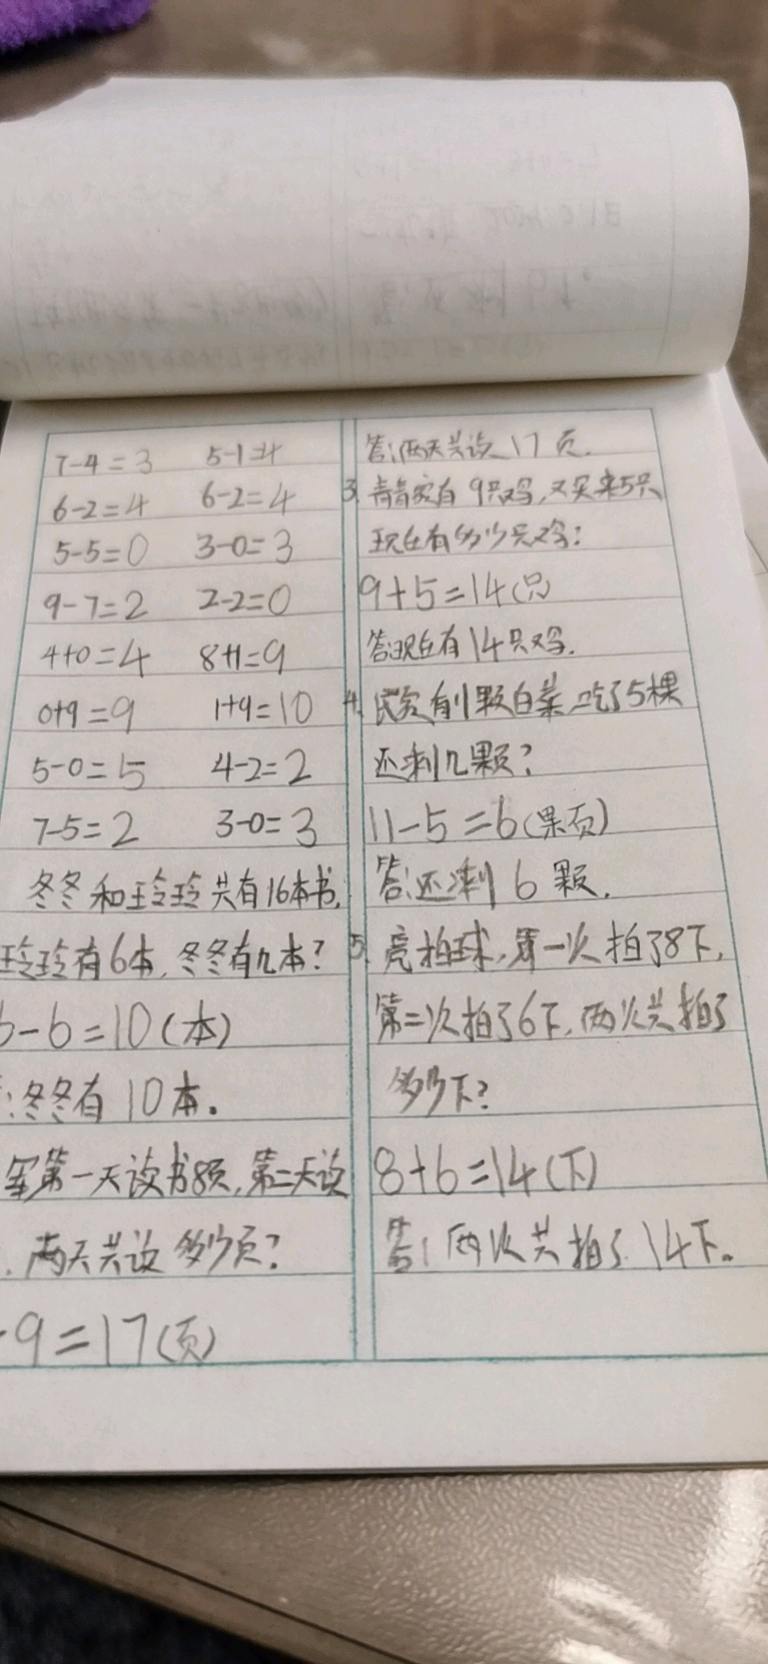 7-4=3 5-1=4
6-2=4 6-2=4
5-5=0 3-0=3
9-7=2 2-2=0
4+0=4 8+1=9
0+9=9 1+9=10
5-0=5 4-2=2
7-5=2 3-0=3
冬冬和玲玲共有16本书,
玲玲有6本,冬冬有几本?
6-6=10(本)
:冬冬有10本。
军第一天读书8页,第二天读
,两天共读多少页?
9=17(页)
答:两天共读17页.
3. 青青家有9只鸡,又买来5只
现在有多少只鸡?
9+5=14(只)
答:现在有14只鸡.
4. 家有11颗白菜,吃了5棵
还剩几颗?
11-5=6(颗)
答:还剩6颗.
5. 亮拍球,第一次拍了8下,
第二次拍了6下,两次共拍了
多少下?
8+6=14(下)
答:两次共拍了14下。